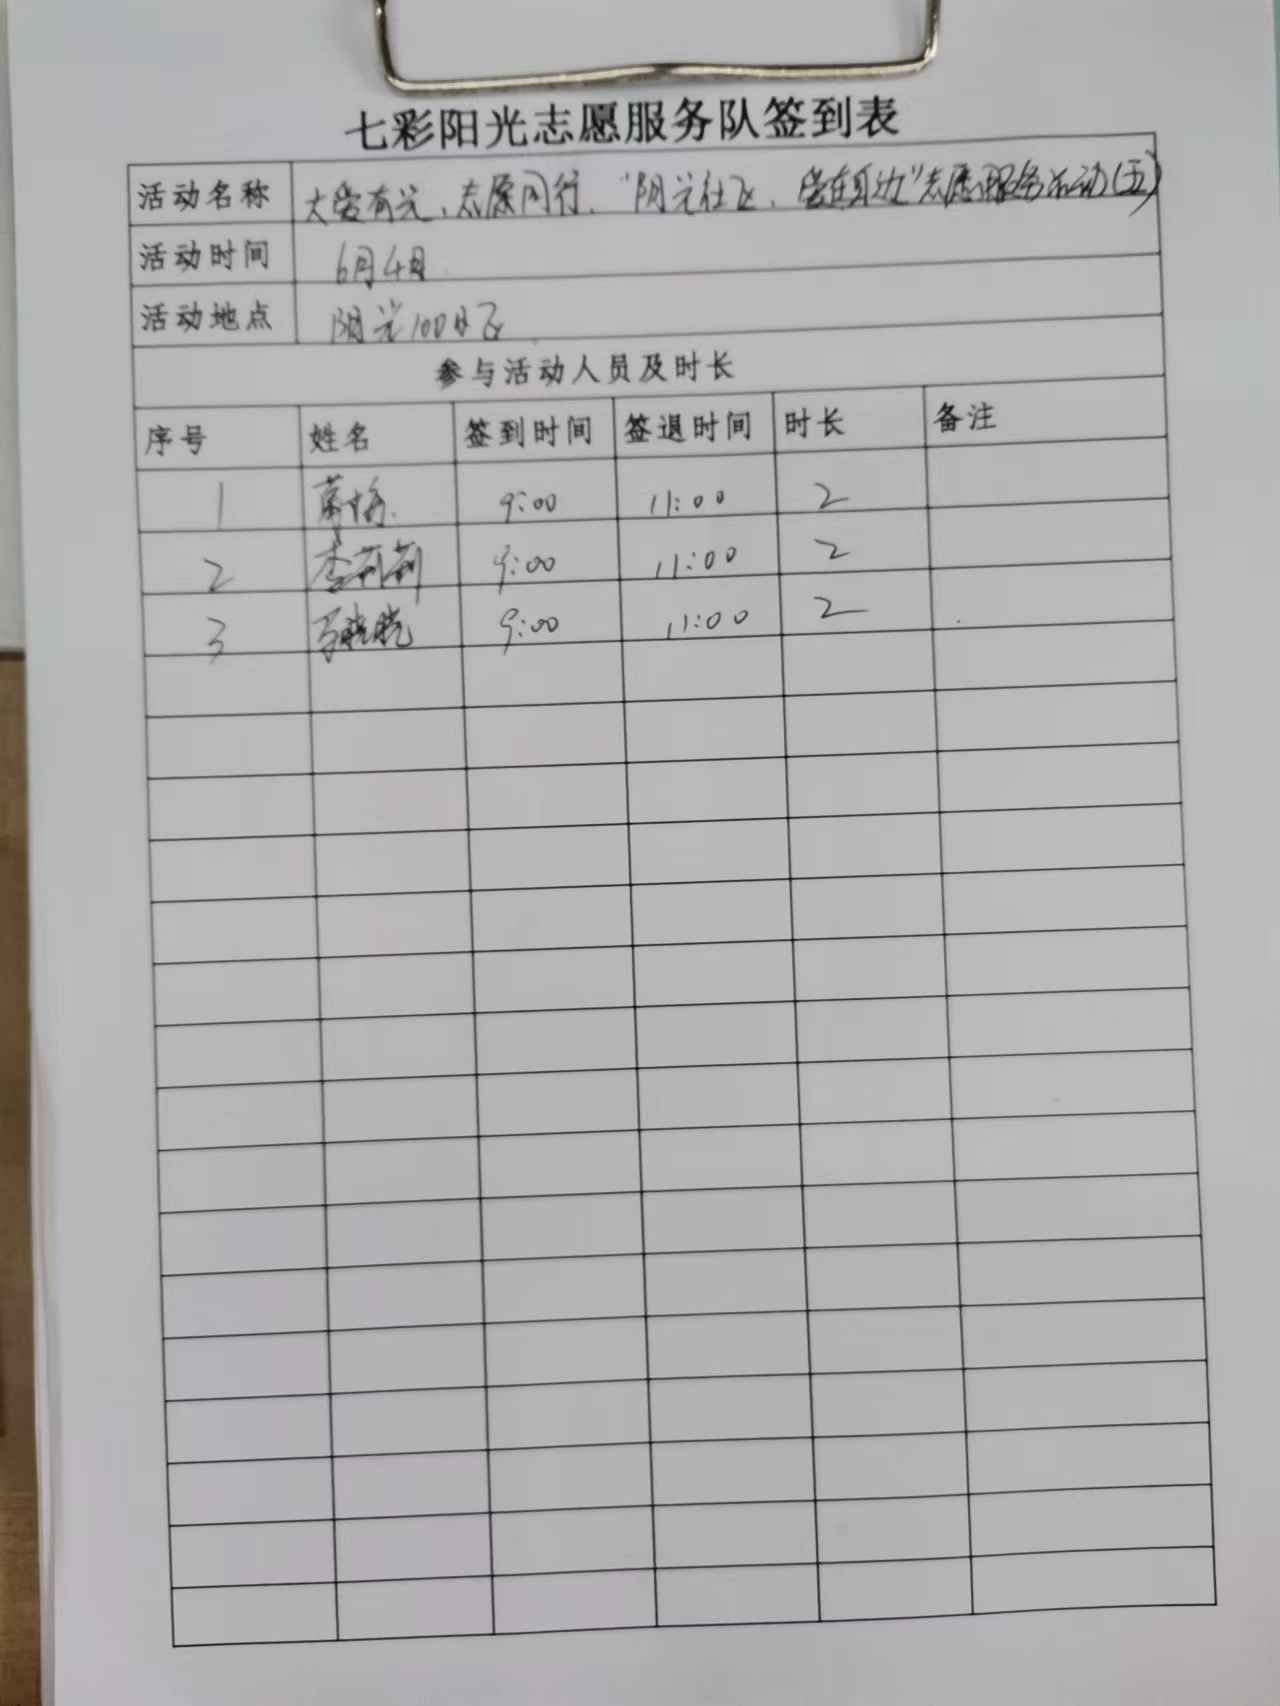 七彩阳光志愿服务队签到表
活动名称 大爱有光、志愿同行、"阳光社区、爱在身边"志愿服务活动(五)
活动时间 6月4日
活动地点 阳光100社区
参与活动人员及时长
序号 姓名 签到时间 签退时间 时长 备注
1 9:00 11:00 2
2 李莉莉 9:00 11:00 2
3 晓晓 9:00 11:00 2